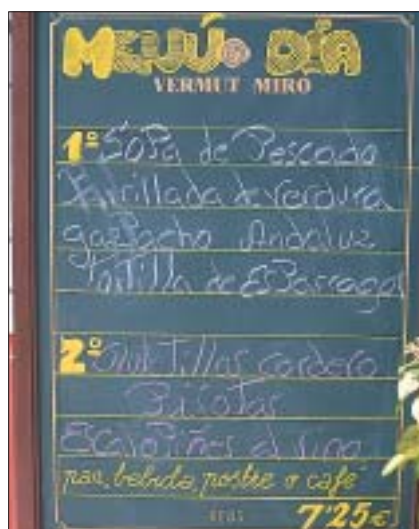 MENÚ DÍA
VERMUT MIRÓ
1º Sopa de Pescado
Parrillada de Verdura
gazpacho Andaluz
Tortilla de Esparragos
2º Chuletillas cordero
pan, bebida, postre o café
REUS
7'25€